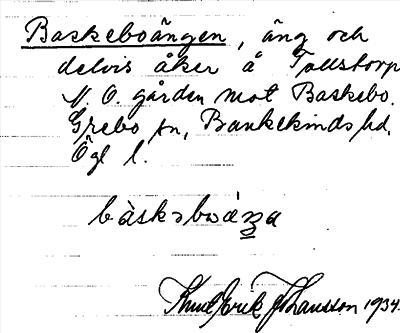 Baskeboängen, äng och
delvis åker å Tollstorp
N. O. gården mot Baskebo.
Grebo sn, Bankekinds hd.
Ögl l.
bàskəboáŋa
Knut Erik Johansson 1934.